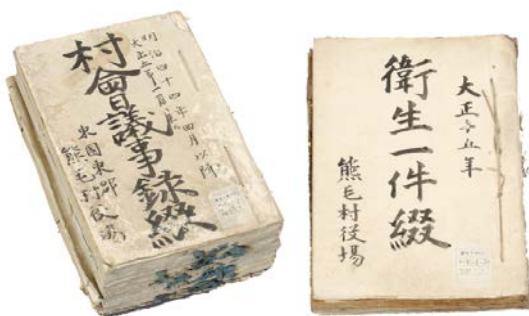 明治四十四年四月以降
大正
村會議事録綴
東国東郡
熊毛村役場
大正 年
衛生一件綴
熊毛村役場